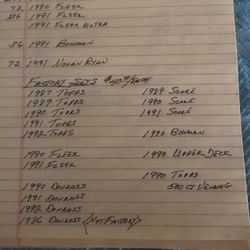 72 1990 FLEER
1991 FLEER
1991 FLEER ULTRA
36 1991 BOWMAN
72 1991 NOLAN RYAN
FACTORY SETS $40.00/EACH
1987 TOPPS 1989 SCORE
1989 TOPPS 1990 SCORE
1990 TOPPS 1991 SCORE
1991 TOPPS
1992 TOPPS 1990 BOWMAN
1990 FLEER 1990 UPPER DECK
1991 FLEER
1990 TOPPS
1990 DONRUSS 500 CT VENDING
1991 DONRUSS
1992 DONRUSS
1986 DONRUSS (NOT FACTORY)